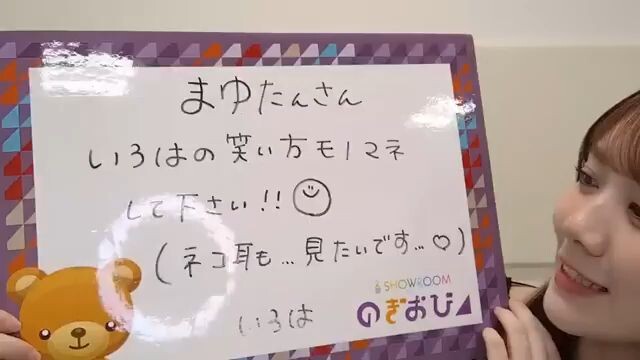 まゆたんさん
いろはの笑い方モノマネ
して下さい!!
(ネコ耳も…見たいです…♡)
いろは
SHOWROOM
のぎおび